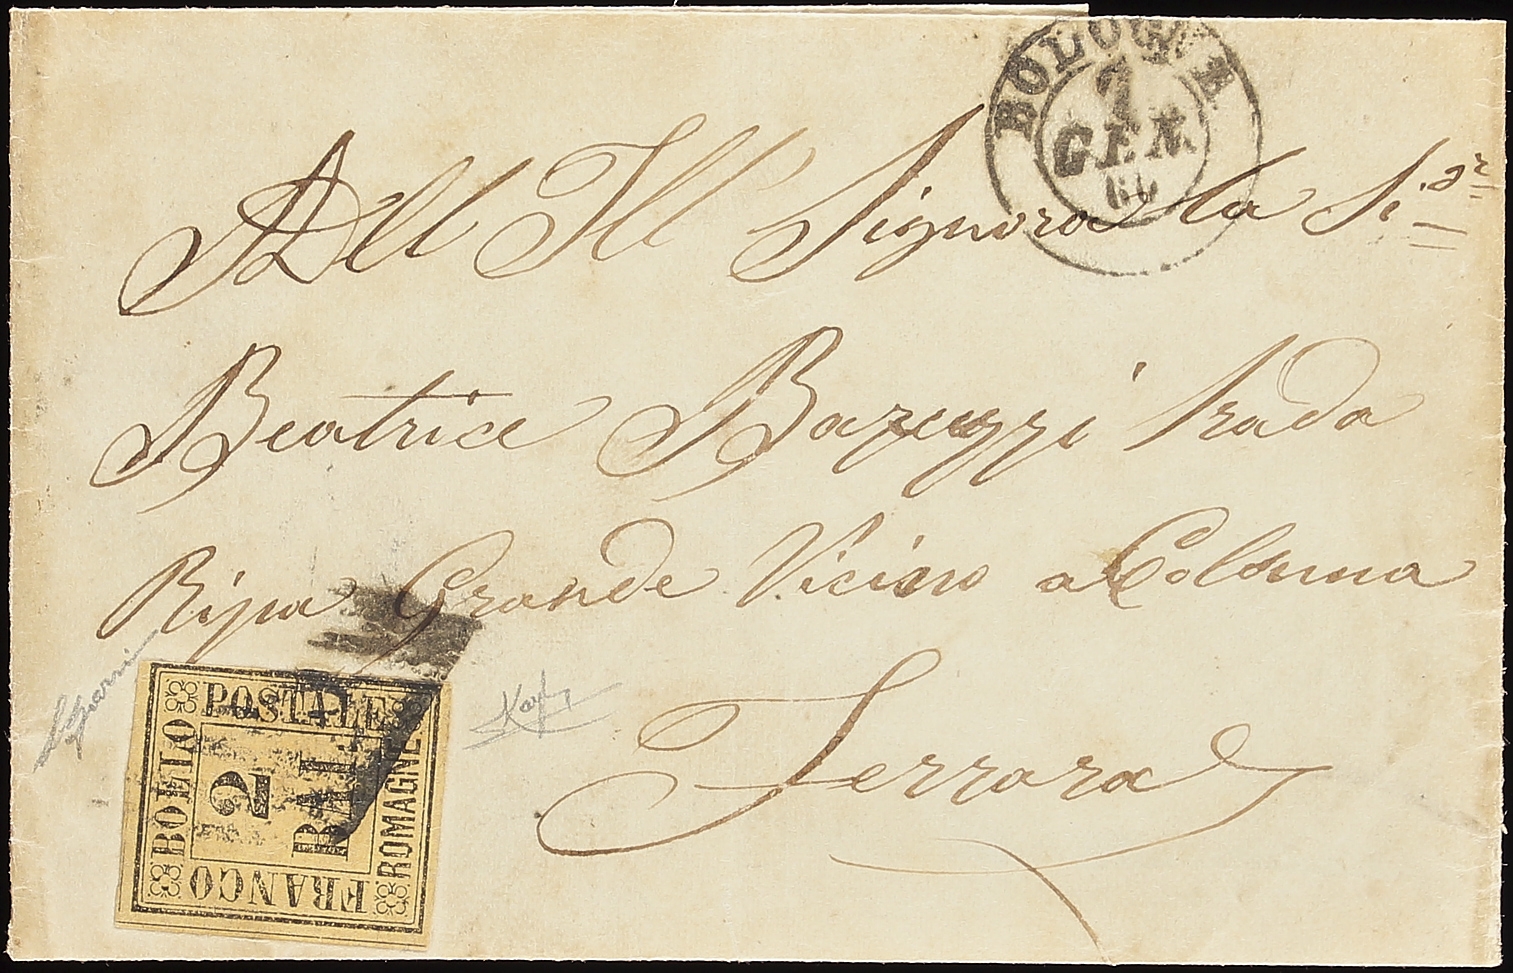 BOLOGNA
7
GEN.
60
All Ill Signora la Si.ra
Beatrice Bazuzzi Strada
Ripa Grande Vicino a Colonna
Ferrara
BOLLO
POSTALE
ROMAGNE
FRANCO
2
BAI.